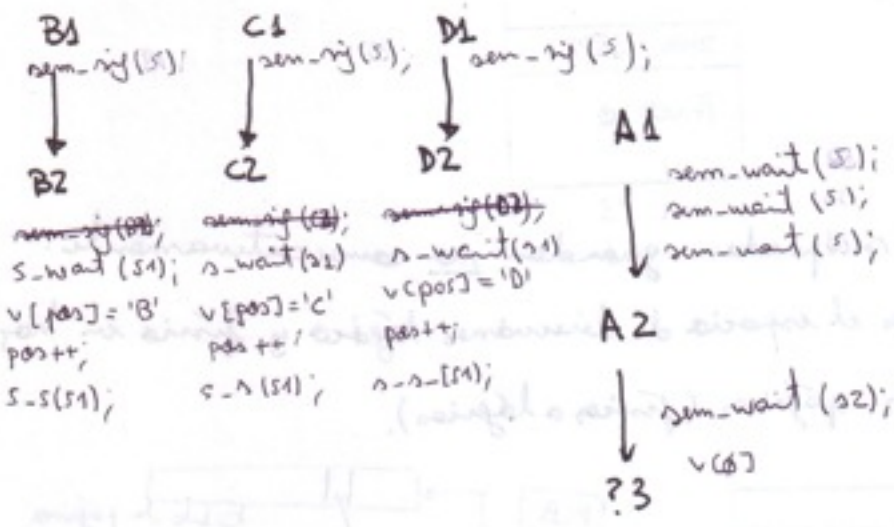 B1
sem_sig(S);
B2
sem_sig(B2);
s_wait(S1);
v[pos]='B'
pos++;
s_s(S1);
C1
sem_sig(S);
C2
sem_sig(C2);
s_wait(s1)
v[pos]='C'
pos++;
s_s(S1);
D1
sem_sig(S);
D2
sem_sig(D2);
s_wait(s1)
v[pos]='D'
pos++;
s_s_(S1);
A1
sem_wait(S);
sem_wait(S);
sem_wait(S);
A2
sem_wait(s2);
v[0]
?3